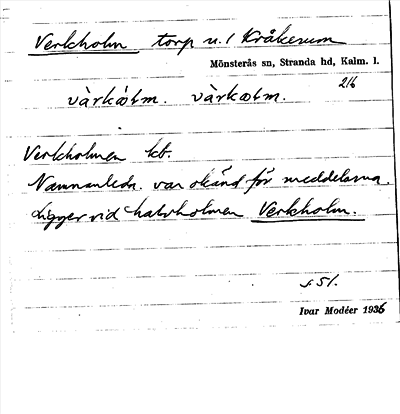 Verkholm torp u. 1 Kråkerum
Mönsterås sn, Stranda hd, Kalm. l.
216
vàrkòlm. vàrkɷlm.
Verkholmen kt.
Namnanledn. var okänd för meddelarna.
Ligger vid halvholmen Verkholm.
s. 51.
Ivar Modéer 1936